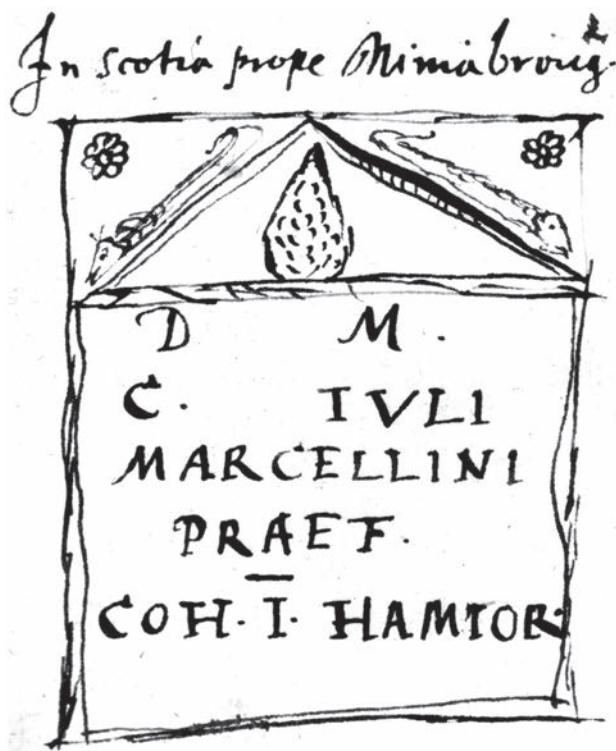 In scotia prope
D M.
C. IVLI
MARCELLINI
PRAEF.
COH. Ī. HAMIOR